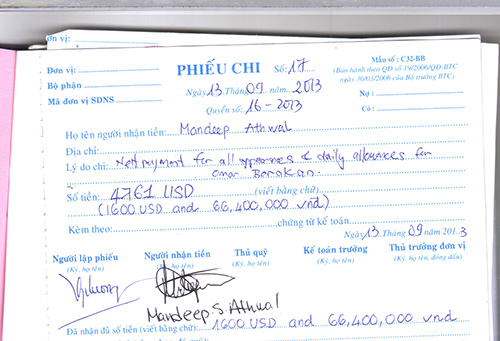 n vị:
Đơn vị:
Bộ phận
Mã đơn vị SDNS
PHIẾU CHI Số: 17
Ngày 13 Tháng 09. năm 2013
Quyển số: 16-2013
Mẫu số : C32-BB
(Ban hành theo QĐ số 19/2006/QĐ-BTC
ngày 30/03/2006 của Bộ trưởng BTC)
Nợ :
Có :
Họ tên người nhận tiền: Mandeep Athwal
Địa chỉ:
Lý do chi: Net payment for all & daily allowances for
Omar Borokan.
Số tiền: 4761 USD (viết bằng chữ)
(1600 USD and 66,400,000 vnd)
Kèm theo: chứng từ kế toán
Ngày 13. Tháng 09 năm 2013
Người lập phiếu Người nhận tiền Thủ quỹ Kế toán trưởng Thủ trưởng đơn vị
(Ký, họ tên) (Ký, họ tên) (Ký, họ tên) (Ký, họ tên) (Ký, họ tên, đóng dấu)
Mandeep.S.Athwal
Đã nhận đủ số tiền (viết bằng chữ): 1600 USD and 66,400,000 vnd